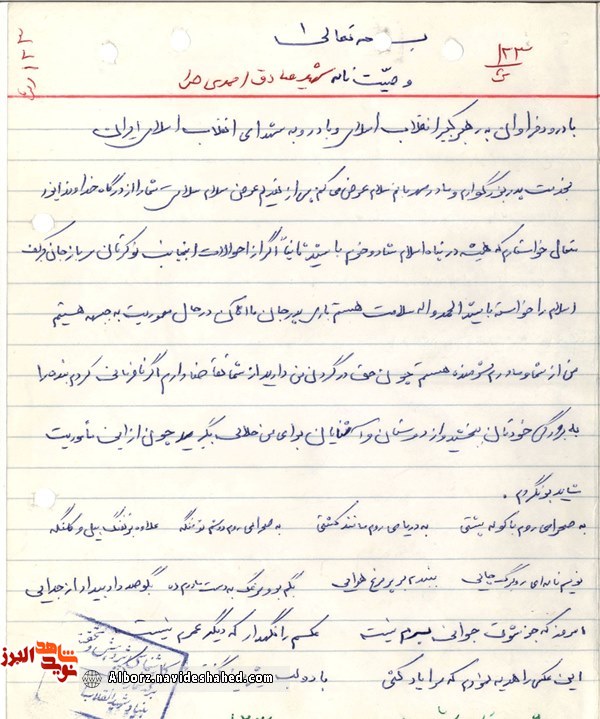 بسمه تعالی
۱۲۳
وصیّت نامه شهید صادق احمدی
با درود فراوان به رهبر کبیر انقلاب اسلامی و با درود به شهدای انقلاب اسلامی ایران
بخدمت پدر بزرگوارم و مادر مهربانم سلام عرض می کنم پس از تقدیم عرض سلام سلامتی شما را از درگاه خداوند
متعال خواستارم که همیشه در پناه اسلام شاد و خرم باشید ثانیاً اگر از احوالات اینجانب نوکرتان سرباز جان برکف
اسلام را خواسته باشید الحمدوالله سلامت هستم باری پدر جان ما الان در حال معموریت به جبهه هستیم
من از شما و مادرم شرمنده هستم چون حق در گردن من دارید از شما تقاضا دارم اگر نافرمانی کردم بنده را
به بزرگی خودتان ببخشید و از دوستان و آشنایان برای من حلالی بگیرید چون از این مأموریت
شاید برنگردم .
به صحرا می روم با کوله پشتی به دریا می روم مانند کشتی به صحرا می روم دوشم تفنگه علاوه بر تفنگ بیل و کلنگه
نویسم نامه ای ز برگ چایی ببندم بر پر مرغ هوایی بگم برو مرغک به دست مادرم ده بگو صد داد بیداد از جدایی
امروز که جز شربت جوانی بسرم نیست عکسم را نگهدار که دیگر عمرم نیست
این عکس را هدیه نمودم که مرا یاد کنی با دو لب
نوید شاهد البرز
Alborz.navideshahed.com